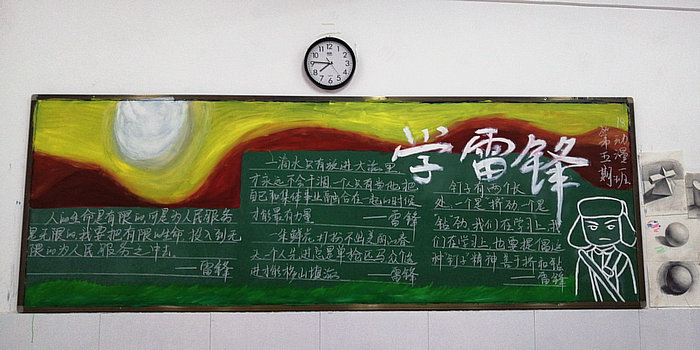 学雷锋
18动漫班
第五期
人的生命是有限的可是为人民服务
是无限的我要把有限的生命投入到无
限的为人民服务之中去
——雷锋
一滴水只有放进大海里
才永远不会干涸一个人只有当他把
自己和集体事业融合在一起的时候
才能最有力量
——雷锋
一朵鲜花打扮不出美丽的春
天一个人先进总是单枪匹马众人先
进才能移山填海
——雷锋
钉子有两个长
处一个是挤劲一个是
钻劲我们在学习上
也要提倡这
种钉子精神善于挤和钻
——雷锋